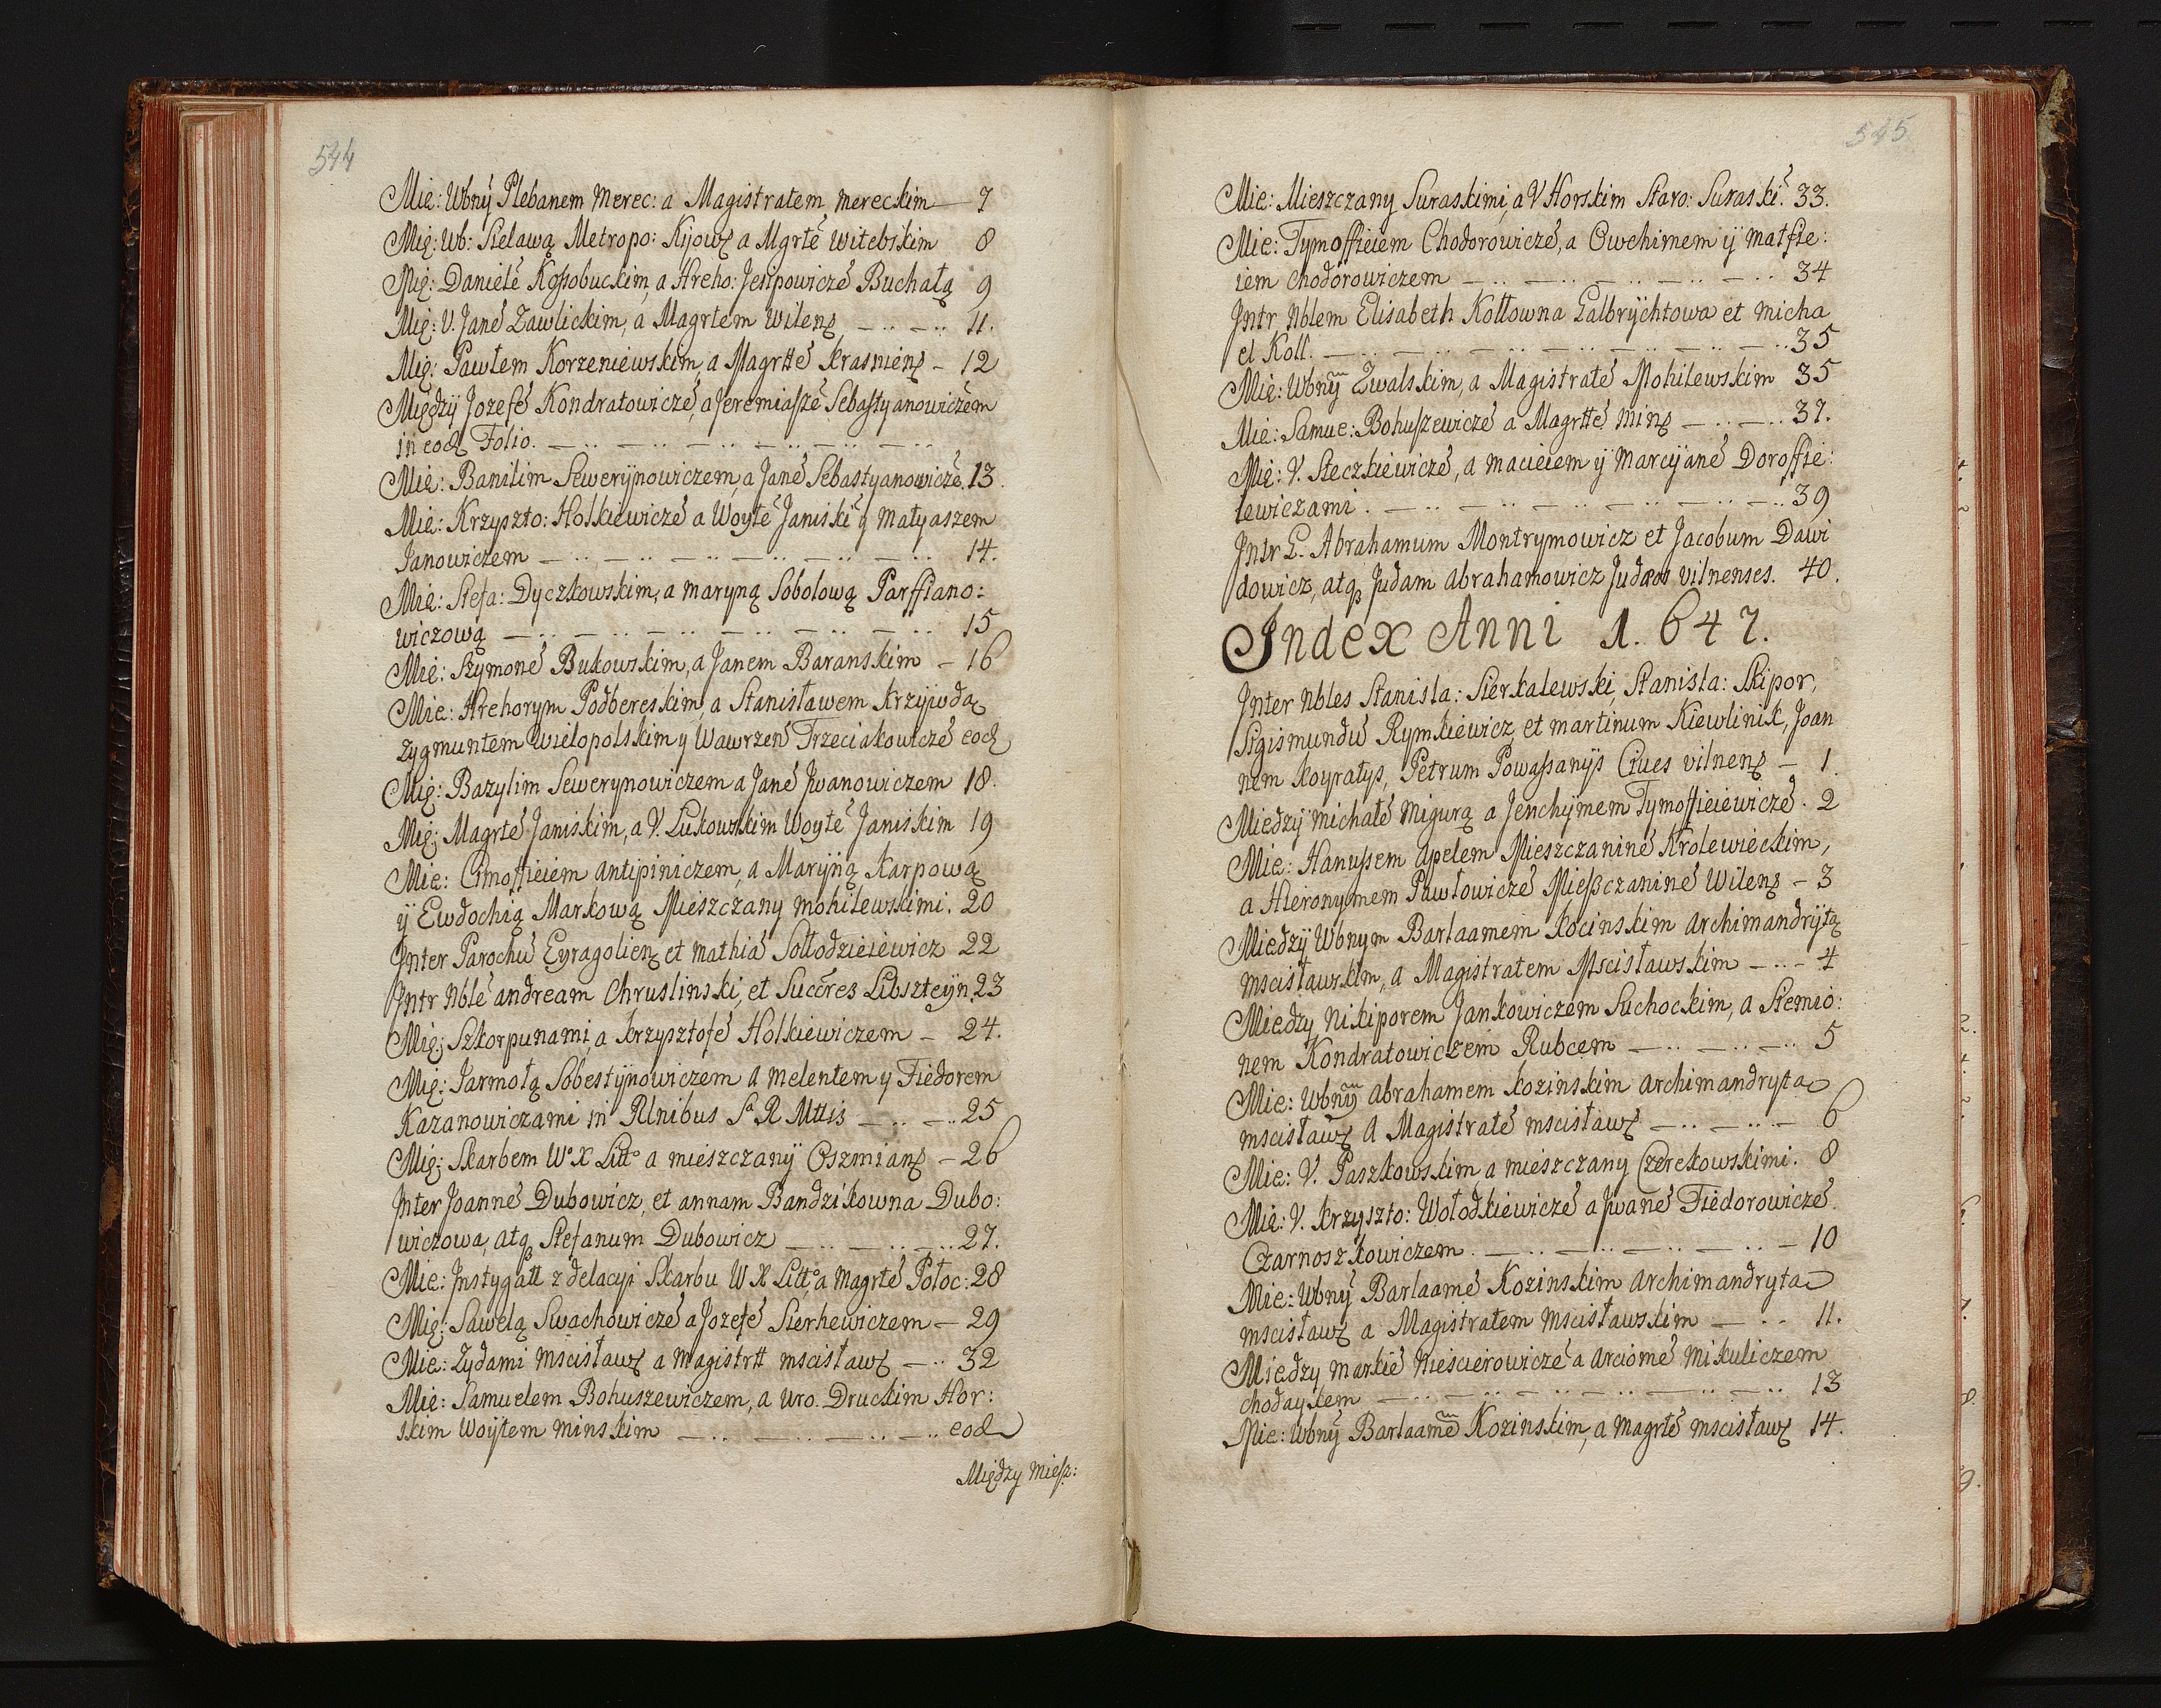 544
Mię: Wbny Plebanem Merec: a Magistratem Mereckim — 7
Mię: Wb: Sielawą Metropo: Kijows a Mgrtē Witebskim 8
Mię: Danielē Kossobuckim, a Hreho: Jesipowiczē Buchałą 9
Mię: V. Janē Zawlickim, a Magrtem Wilens — .. — .. 11.
Mię: Pawłem Korzeniewskim, a Magrttē krasniens — 12
Między Jozefē Kondratowiczē, a Jeremiaszē Sebastyanowiczēm
in eod Folio. — .. — .. — .. — .. — .. —
Mię: Banilim Sewerynowiczem, a Janē Sebastyanowiczē. 13.
Mię: Krzyszto: Holkiewiczē a Woytē Janiskī y Matyaszem
Janowiczem — .. — .. — .. — .. — .. — .. 14.
Mię: Stefa: Dyczkowskim, a maryną Sobolową Parffiano:
wiczową — .. — .. — .. — .. — .. — .. 15
Mię: Szymonē Bukowskim, a Janem Baranskim — 16
Mię: Hrehorym Podbereskim, a Stanisławem Krzywdą
Zygmuntem wielopolskim y Wawrzeń Trzeciakowiczē eod
Mię: Bazylim Sewerynowiczem a Janē Jwanowiczem 18.
Mię: Magrtē Janiskim, a V. Lukowskim Woytē Janiskim 19
Mię: Cimoffieiem antipiniczem, a Maryną Karpową
ÿ Ewdochią Markową Mieszczany mohilewskimi. 20
Inter Parochū Eyragoliens et Mathiā Sołłodzieiewicz 22
Intr Nblē andream Chruslinski, et Succres Libszteyn. 23
Mię: Szkorpunami, a krzysztofē Holkiewiczem — 24.
Mię: Jarmołą Sobestynowiczem a melentem y Fiedorem
Kazanowiczami in Rlnibus S R Mttis — .. — .. 25
Mię: Skarbem W° X Litt° a mieszczany Oszmians — 26
Inter Joannē Dubowicz, et annam Bandzikowna Dubo:
wiczowa, atq Stefanum Dubowicz — .. — .. — .. 27.
Mię: Instygatt z delacyi Skarbu W X Litt° a Magrtē Połoc: 28
Mię: Sawelą Swachowiczē a Jozefē Sierhewiczem — 29
Mię: Zydami Mscisławs a Magistrtt mscisławs — .. 32
Mię: Samuelem Bohuszewiczem, a Uro. Druckim Hor:
skim Woytem Minskim — .. — .. — .. — .. eod
Między Miesz:
545
Mię: Mieszczany Suraskimi, a V Horskim Staro: Suraskī. 33.
Mię: Tymoffieiem Chodorowiczē, a Owchimem y Matfie:
iem Chodorowiczem — .. — .. — .. — .. — .. 34
Intr Nblem Elisabeth Kottowna Galbrychtowa et Micha
el Koll. — .. — .. — .. — .. — .. — .. — .. 35
Mię: Wbny Zwalskim, a Magistratē Mohilewskim 35
Mię: Samue: Bohuszewiczē a Magrttē Mins — .. — .. 37.
Mię: V. Steczkiewiczē, a Macieiem y Marcyanē Doroffie:
iewiczami. — .. — .. — .. — .. — .. — .. 39
Intr G. Abrahamum Montrymowicz et Jacobum Dawi
dowicz, atq Judam Abrahamowicz Judæos vilnenses. 40.
Index Anni 1647.
Inter Nbles Stanisla: Sierkalewski, Stanisla: Skipor,
Sigismundū Rymkiewicz, et martinum Kiewlinik, Joan
nem Koyratys, Petrum Powassanys Ciues vilnens — 1.
Między Michałē Migurą a Jenchymem Tymoffieiewiczē. 2
Mię: Hanussem Apelem Mieszczaninē Krolewieckim,
a Hieronymem Pawłowiczē Mieszczaninē Wilens — 3
Między Wbnym Barlaamem Kocinskim Archimandrytą
Mscisławskim, a Magistratem Mscisławskim — .. — 4
Między Nikiporem Jankowiczem Suchockim, a Siemio:
nem Kondratowiczem Rubcem — .. — .. — .. 5
Mię: Wbny Abrahamem Kozinskim Archimandryta
mscisławs a Magistratē mscisławs — .. — .. — 6
Mię: V. Paszkowskim, a mieszczany Czerekowskimi. 8
Mię: V. Krzyszto: Wołodkiewiczē a Jwanē Fiedorowiczē.
Czarnoszkowiczem. — .. — .. — .. — .. — 10
Mię: Wbny Barlaamē Kozinskim Archimandryta
mscisławs a Magistratem Mscisławskim — .. 11.
Między Markiē Niescierowiczē a Arciomē Mikuliczem
chodaykem — .. — .. — .. — .. — .. — .. 13
Mię: Wbny Barlaamē Kozinskim, a Magrtē mscisławs 14.